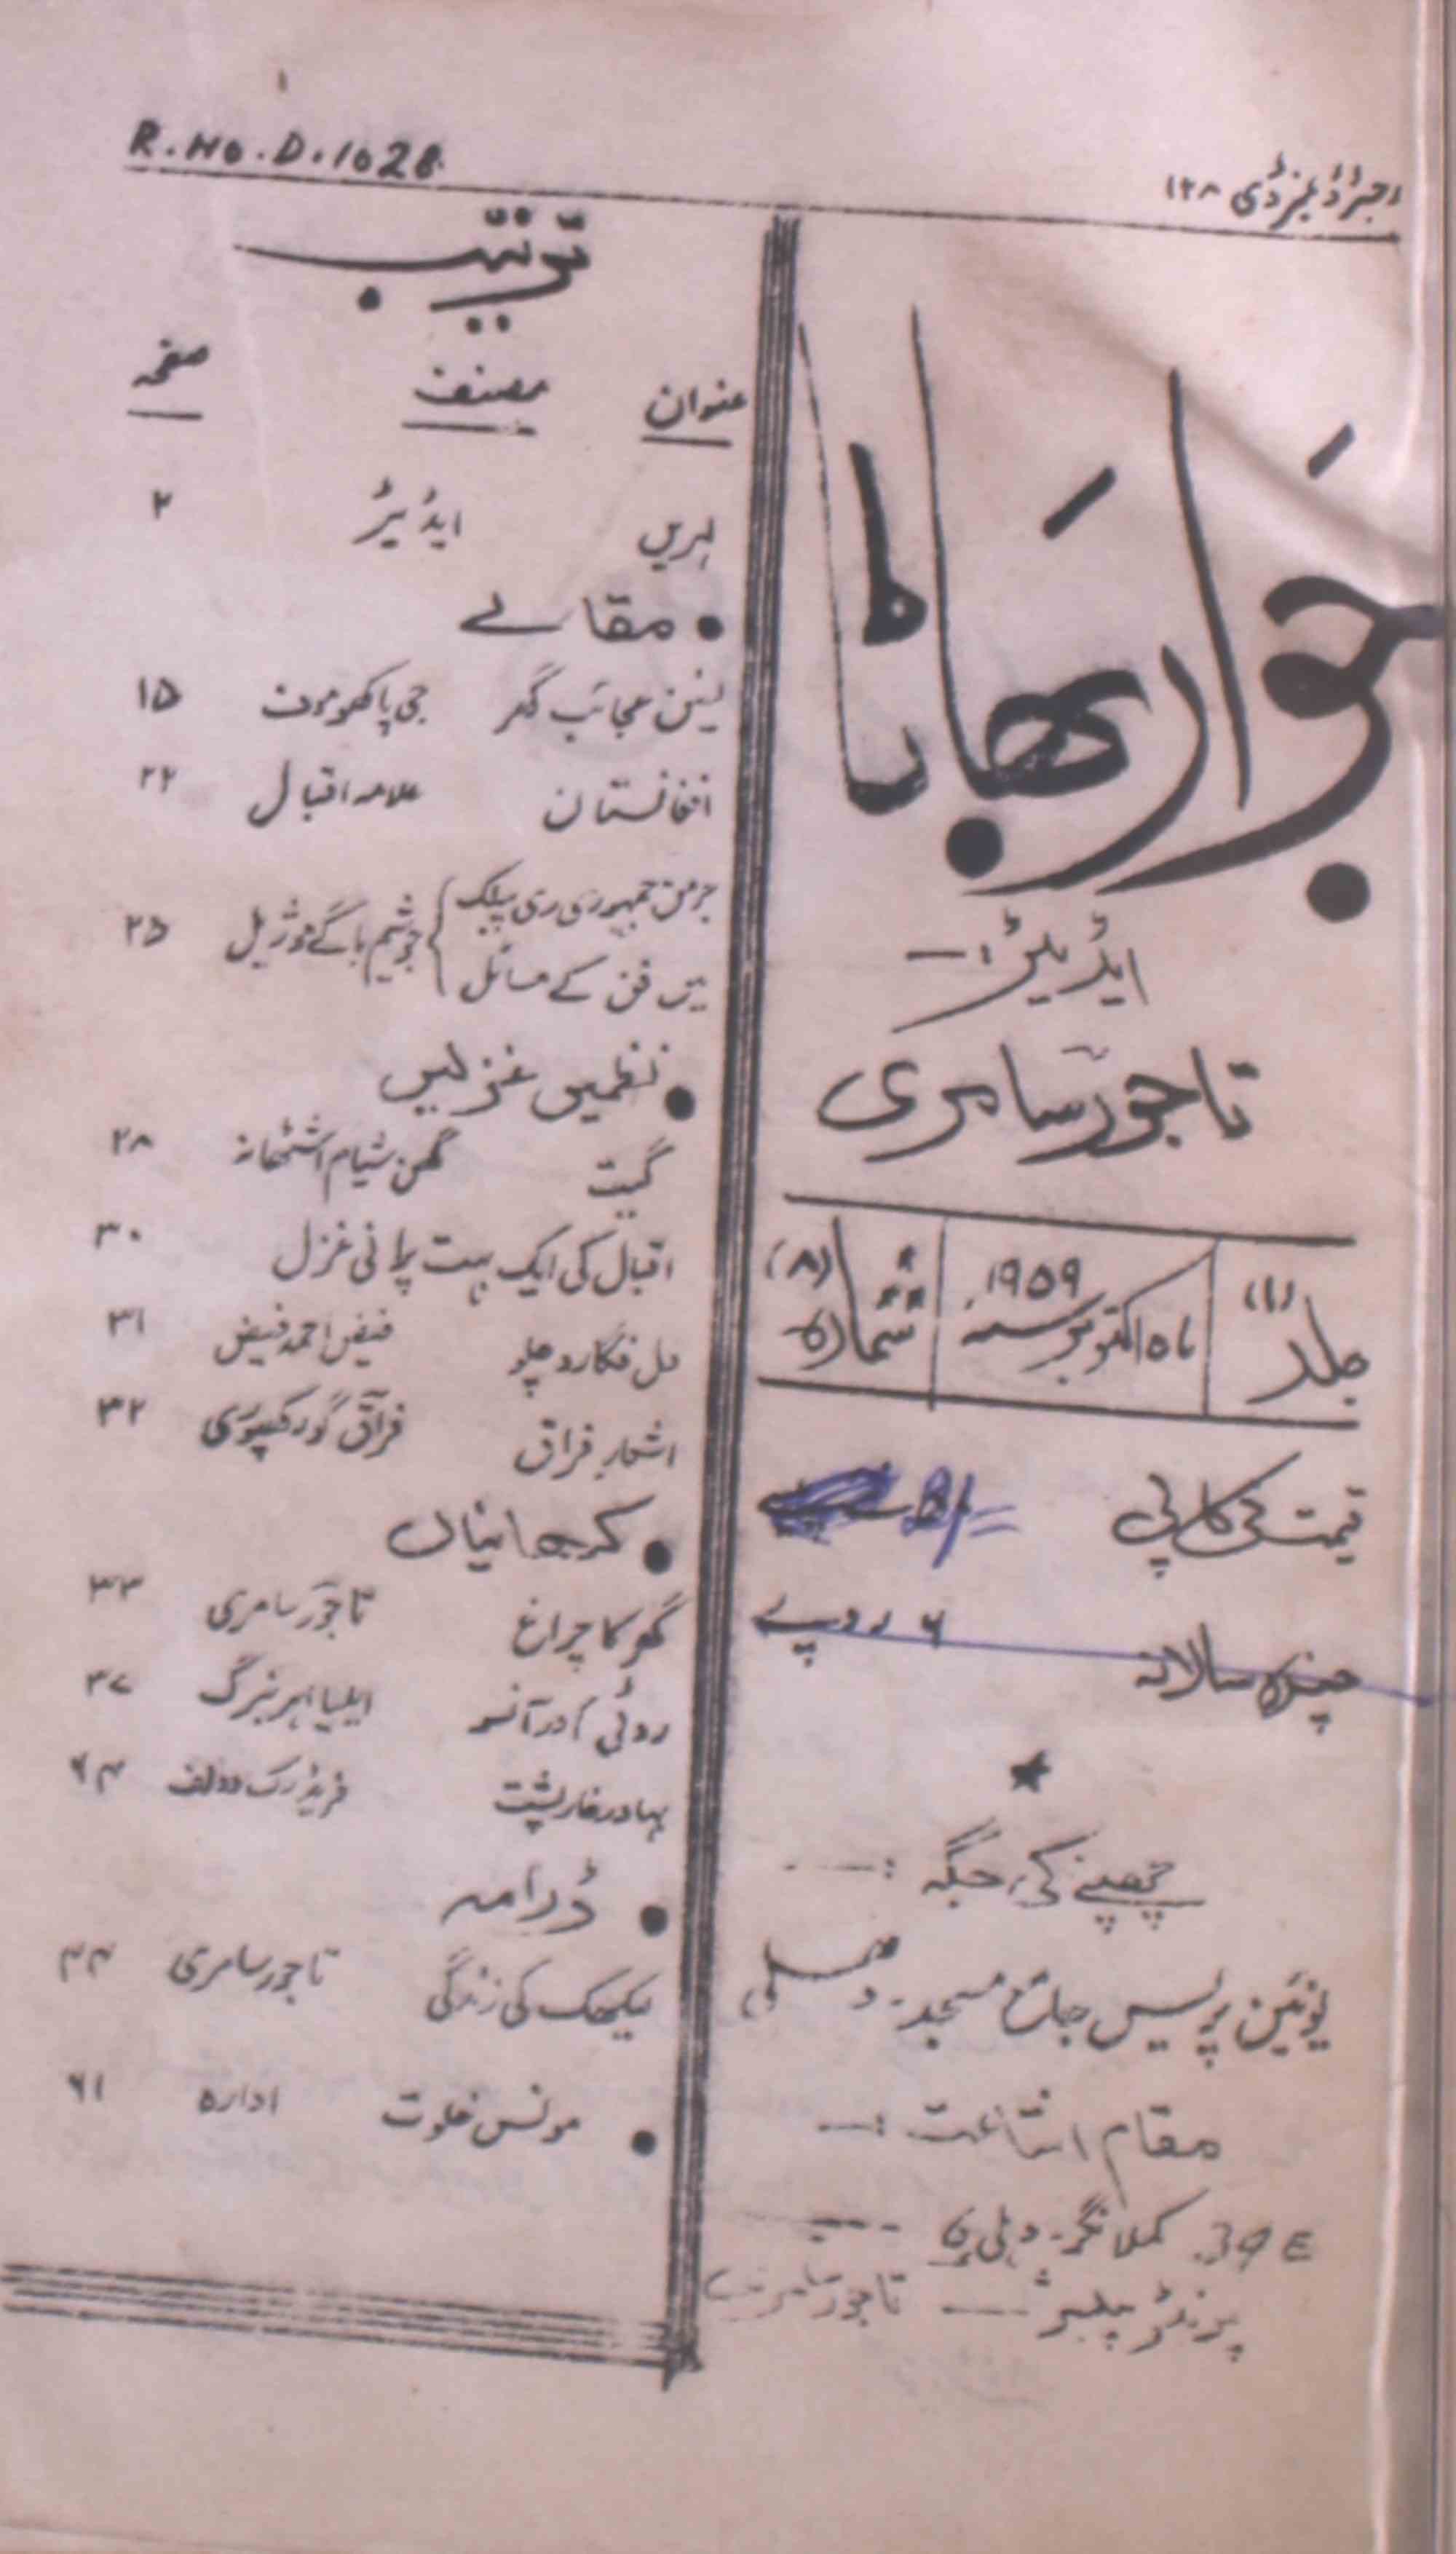 رجسٹرڈ نمبر ڈی ۱۲۸
جوار بھاٹا
ایڈیٹر:—
تاجور سامری
جلد (۱) ماہ اکتوبر سنہ ۱۹۵۹ شمارہ (۸)
قیمت فی کاپی
چندہ سالانہ ۶ روپے
چھپنے کی جگہ :—
یونین پریس جامع مسجد۔ دہلی
مقام اشاعت :—
39E. کملا نگر۔ دہلی
پرنٹر پبلشر — تاجور سامری
R.No.D.1028
ترتیب
عنوان مصنف صفحہ
لہریں ایڈیٹر ۲
• مقالے
لینن عجائب گھر جی پاکھوموف ۱۵
افغانستان علامہ اقبال ۲۲
جرمن جمہوری ری پبلک
میں فن کے مسائل ۲۵
• نظمیں غزلیں
گیت گھن شیام اشٹھانہ ۲۸
اقبال کی ایک بہت پرانی غزل ۳۰
دل فگارو چلو فیض احمد فیض ۳۱
اشعارِ فراق فراق گورکھپوری ۳۲
• کہانیاں
گھر کا چراغ تاجور سامری ۳۳
روئی اور آنسو ایلیا اہرنبرگ ۳۷
بہادر خارپشت فریڈرک وولف ۶۴
• ڈرامہ
یکیھک کی زندگی تاجور سامری ۴۴
• مونس خلوت ادارہ ۶۱